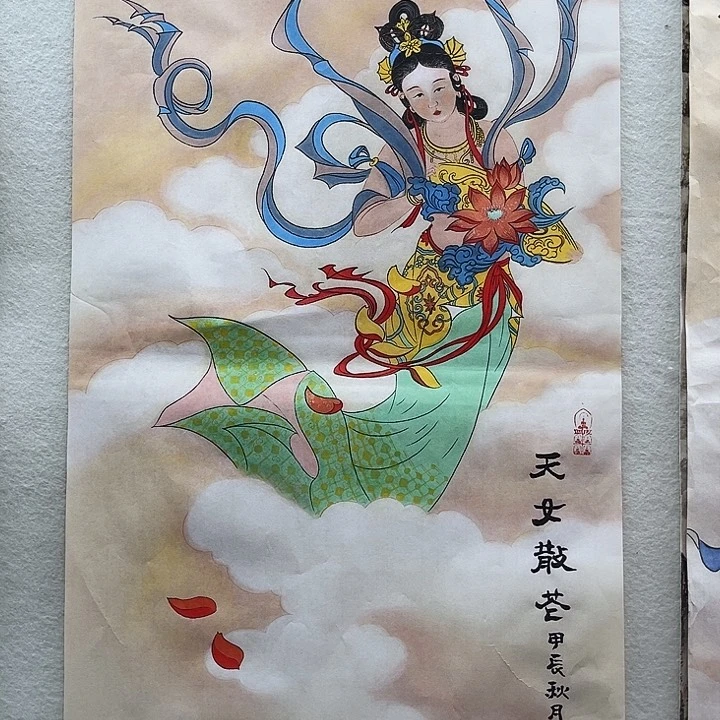 天女散花
甲辰秋月